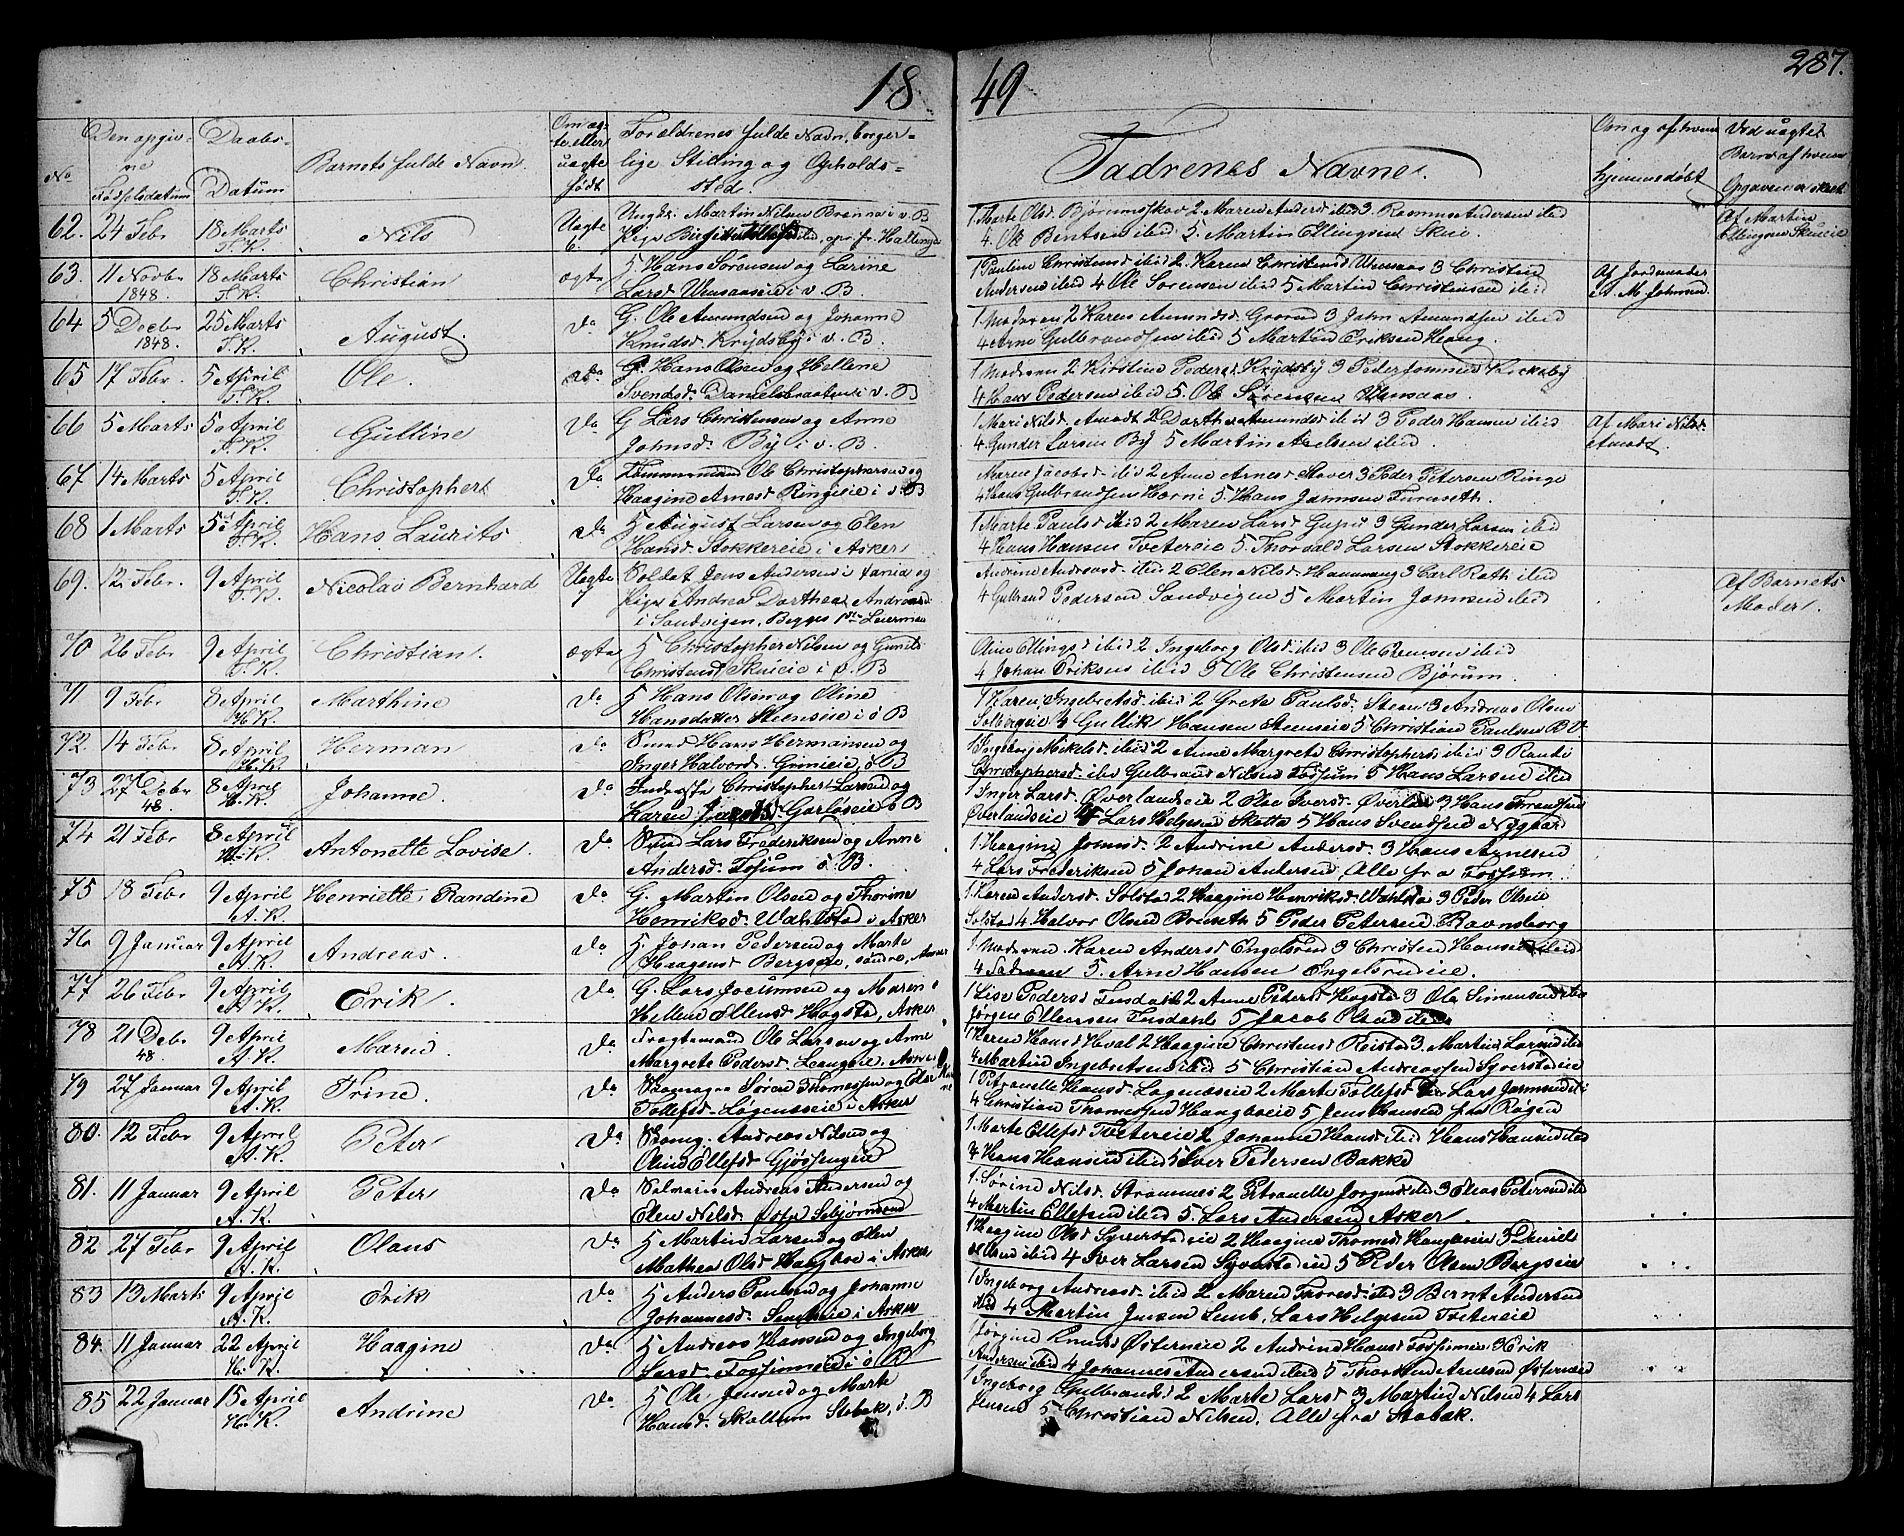 18 49 287.
No
Den opgivne Fødselsdatum
Daabs-Datum
Barnets fulde Navn
Om ægte eller uægte født
Forældrenes fulde Navn, borgerlige Stilling og Opholdssted.
Fadrenes Navne.
Om og af hvem hjemmedøbt
Ved uægte Barns af hvem Opgaven er skeet
62. 24 Febr 18 Marts T.K. Nils Uægte 6. Ungkr. Martin Nilsen i v. B
Pige fr. Halling
1 Marte Olsd. Bjørumskov 2 Maren Andersd ibid 3 Rasmus Andersen ibid
4. Ole Bentsen ibid 5. Martin Ellingsen Skui.
Af Martin Ellingsen Skuieie
63. 11 Novbr 1848. 18 Marts T.K. Christian ægte H Hans Sørensen og Larine
Larsd i v. B.
1 Pauline Christensd ibid 2. Karen Christensd 3 Christen
Andersen ibid 4 Ole Sørensen ibid 5 Martin Christensen ibid
Af Jordemoder A. M. Johnsen
64 5 Decbr 1848. 25 Marts T.K. August. Do G. Ole Amundsen og Johanne
Knudsd. Krydsby i v. B.
1 Moderen 2 Karen Amundsd. Grorud 3 John Amundsen ibid
4 Arne Gulbrandsen ibid 5 Martin Eriksen Haug.
65 17 Febr. 5 April T.K. Ole. do G. Hans Olsen og Hellene
Svendsd. Danielsbraaten i v. B
1 Moderen 2 Kirstine Pedersd Krydsby 3 Peder
4 Hans Pedersen ibid 5. Ole Sørensen
66 5 Marts 5 April T.K. Gulline Do G Lars Christensen og Anne
Johnsd. By i v. B.
1 Mari Nilsd. Aamodt 2 Dorthe Amundsd ibid 3 Peder Hansen ibid
4 Gunder Larsen By 5 Martin Nielsen ibid.
Af Mari Nilsd. Aamodt
67 14 Marts 5 April T.K. Christopher Do Tømmermand Ole Christophersen og
Haagine Arnesd Ringieie i v. B
Maren Jacobsd ibid 2 Anne Arnesd Stover 3 Peder Petersen Ringe
4 Hans Gulbrandsen Horni 5 Hans Johnsen Furuseth.
68 1 Marts 5 April T.K. Hans Laurits Do H August Larsen og Elen
Hansd Stokkereie i Asker
1 Marte Paulsd ibid 2 Maren Larsd 3 Gunder Larsen ibid
4 Hans Hansen Tvetereie 5. Thorvald Larsen Stokkereie
69. 12 Febr. 9 April T.K. Nicolai Bernhard Uægte 7 Soldat Jens Andersen i og
Pige Andrea Dorthea
i Sandvigen, Begges 1ste Leiermaal
Andrine ibid 2 Elen Nilsd. Hammang 3 Carl Roth ibid
4 Gulbrand Pedersen Sandvigen 5 Martin Johnsen ibid
Af Barnets Moder.
70 26 Febr 9 April T.K. Christian. ægte H Christopher Nilsen og Gunild
Christensd Skuieie i v. B
Oline Ellingsd ibid 2 Ingeborg Olsd ibid 3 Ole ibid
4 Johan Eriksen ibid 5 Ole Christensen Bjørum.
71 9 Febr 8 April H.K. Marthine do H Hans Olsen og Oline
Hansdatter Steenseie i ø B
1 Karen Ingebretsd ibid 2 Grete Paulsd. Steen 3 Andreas Olsen
Solbergeie 3 Gullik Hansen Steenseie 5 Christian Paulsen B V
72. 14 Febr 8 April H.K. Herman do Smed Hans Hermansen og
Inger Halvorsd. Grinieie, ø B
1 Ingeborg Mikelsd ibid 2 Anne Margrete Christophersd ibid 3 Randi
Christophersd. ibid Gulbrand Nilsen Fossum 5 Hans Larsen ibid
73 27 Decbr 48. 8 April H.K. Johanne. do Inderste Christopher Larsen og
Karen ø B
1 Inger Larsd. Øverlandseie 2 Else Iversd. Øverland 3 Hans
Øverlandseie 4 Lars Helgesen Sletta 5 Hans Svendsen Nygaard
74 21 Febr 8 April H.K. Antonette Lovise. Do Smed Lars Frederiksen og Anne
Andersd. Fossum ø. B.
1. Haagine Johnsd. 2 Andrine Andersd. 3 Hans Arnesen
4 Lars Frederiksen 5 Johan Andersen, Alle fra Fossum
75 18 Febr 9 April A.K. Henriette Randine do G. Martin Olsen og Thorine
Henriksd. Wahlstad i Asker
1. Karen Andersd. Solstad 2 Haagine Henriksd. 3 Peder Olsen
Solstad 4 Halvor Olsen 5 Peder Petersen Ravnsborg
76 9 Januar 9 April A.K. Andreas. Do H Johan Pedersen og Marte
Haagensd Bergseie, søndre, Asker
1. Moderen Karen Andersd Engelsrud 3 Christen Hansen ibid
4 Faderen 5. Arne Hansen Engelsrudeie.
77 26 Febr 9 April A.K. Erik. Do G. Lars Jocumsen og Maren
Hellene Ellensd Hogstad, Asker
1 Lise Pedersd 2 Anne Pedersd Hogstad 3 Ole Simensen ibid
Jørgen Ellersen 5 Jacob Olsen ibid
78 21 Decbr 48 9 April A.K. Maren. Do Ole Larsen og Anne
Margrete Pedersd.
1 Karen Hansd Hval 2 Haagine Christensd Reistad 3. Martin Larsen ibid
4 Martin Ingebretsen ibid 5 Christian Andreassen Syverstadeie
79 27 Januar 9 April A.K. Trine. Do Skomager Søren Thomessen og
Tollefsd. Løgenæseie i Asker
1 Petronelle Hansd. Løgenæseie 2 Marte Tollefsd Lars
4 Christian Thomessen 5 Jens Hansen fra Røgen
80. 12 Febr 9 April A.K. Peter Do Skomg. Andreas Nilsen og
Oline Ellefsd Gjøssengeie
1. Marte Ellefsd Tvetereie 2 Johanne Hansd ibid Hans Hansen ibid
4 Hans Hansen ibid 5 Iver Pedersen Bakke
81. 11 Januar 9 April A.K. Peter Do Selveier Andreas Andersen og
Elen Nilsd.
1. Sørine Nilsd. Strømnes 2 Petronelle ibid 3 Petersen ibid
4 Martin Ellefsen ibid 5. Lars Andersen Asker.
82 27 Febr 9 April A.K. Olaus Do H Martin Larsen og Elen
Mathea Olsd i Asker
1 Haagine Olsd Syverstadeie 2 Haagine Thomesd 3
Olsen ibid 4 Iver Larsen Syverstadeie 5 Peder Olsen Bergseie
83 13 Marts 9 April A.K. Erik Do H Anders Paulsen og Johanne
Johannesd. i Asker
1 Ingeborg Andreasd. ibid 2 Maren ibid 3 Bernt Andersen
ibid 4 Martin Jensen Lars Helgesen Tvetereie
84. 11 Januar 22 April H.K. Haagine Do H Andreas Hansen og Ingeborg
Larsd. Fossumeie i ø B
1 Jørgine Knudsd Østerneie 2 Andrine Hansd Fossumeie 3 Erik
Andersen ibid 4 Johannes Andersen ibid 5 Arnesen
85 22 Januar 15 April H.K. Andrine Do H Ole Jensen og Marte
Hansd. Skallum Stabæk, ø. B
1 Ingeborg Gulbrandsd 2 Marte Larsd 3 Martin Nilsen 4 Lars
Jensen 5 Christian Nilsen. Alle fra Stabæk.